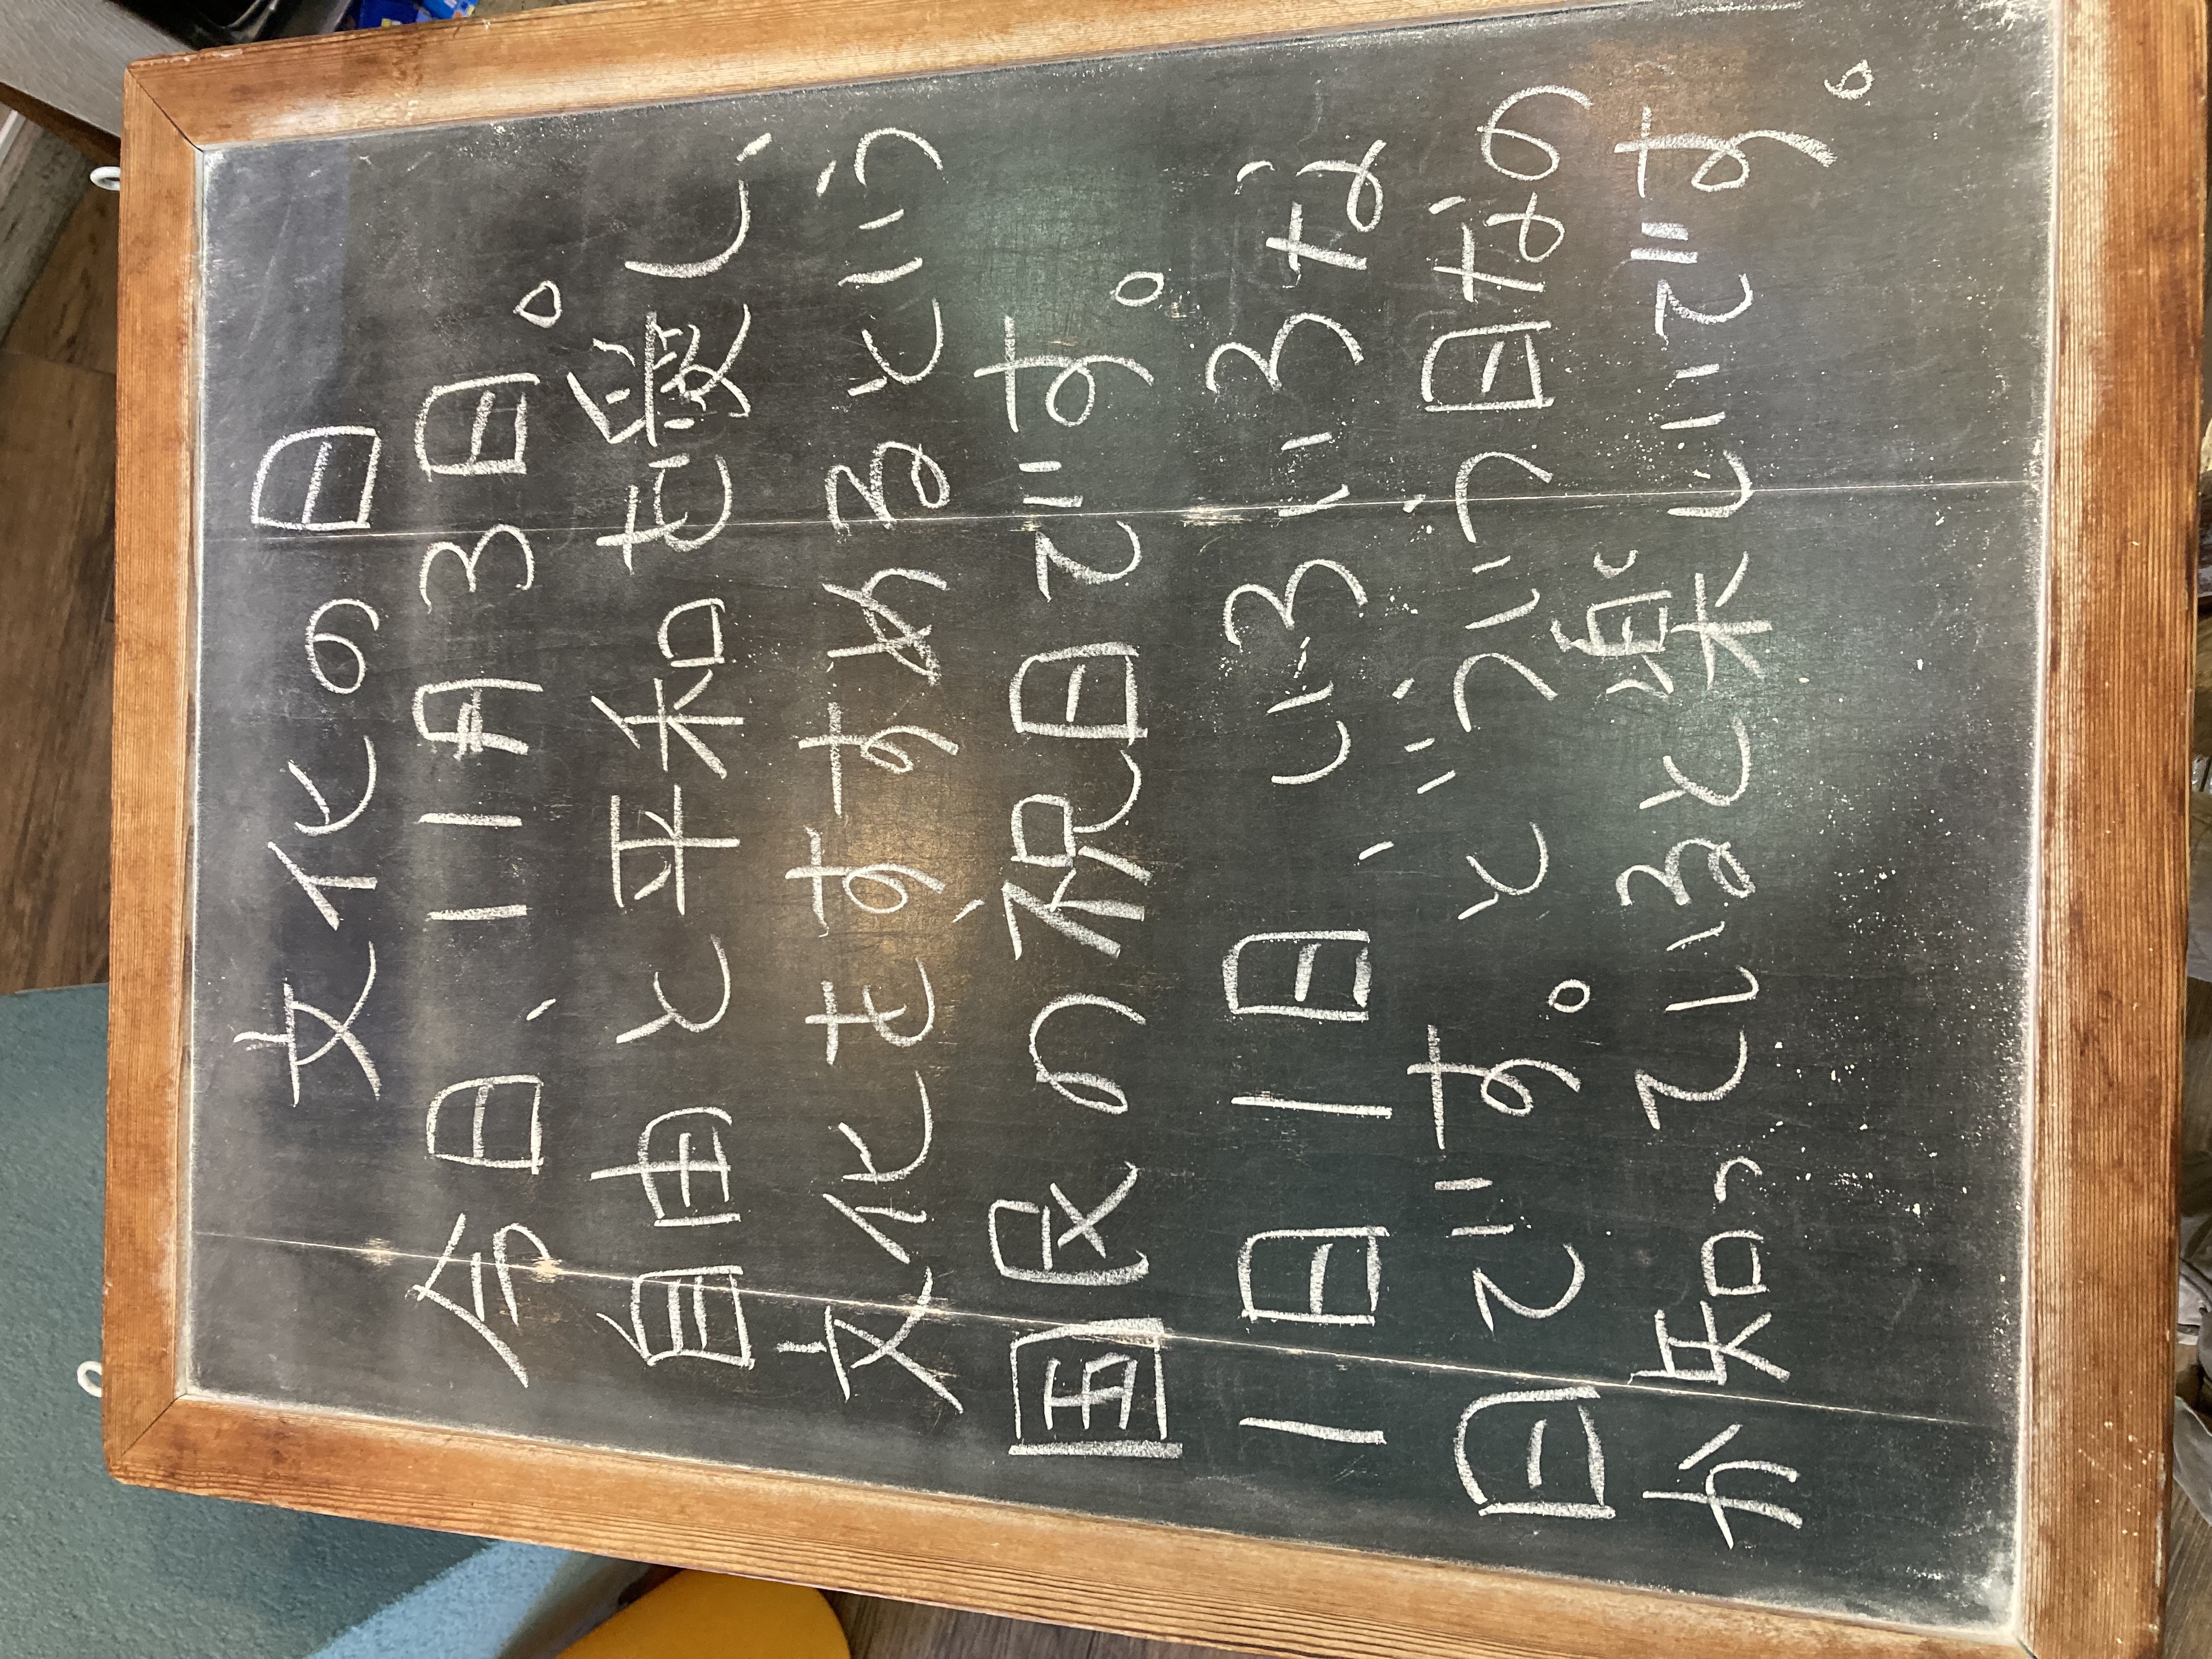 文化の日
今日、11月3日。
自由と平和を愛し、
文化をすすめるという
国民の祝日です。
1日1日、いろいろな
日です。どういう日なの
か知っていると楽しいです。